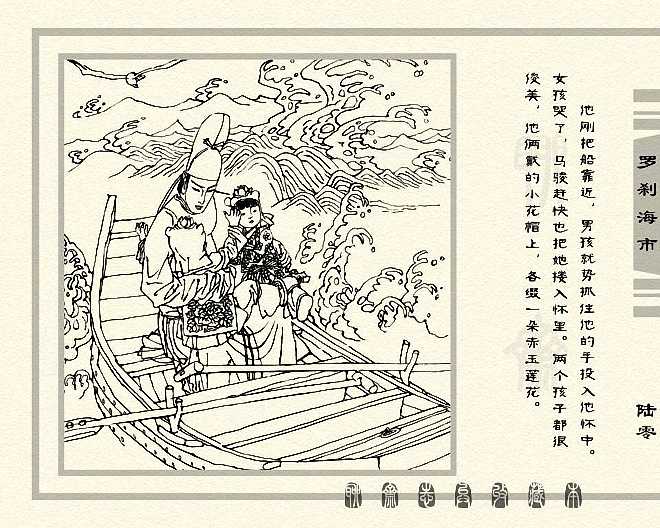 他刚把船靠近，男孩就势抓住他的手投入他怀中。
女孩哭了，马骏赶快也把她搂入怀里。两个孩子都很
俊美，他俩戴的小花帽上，各缀一朵赤玉莲花。
罗刹海市
陆零